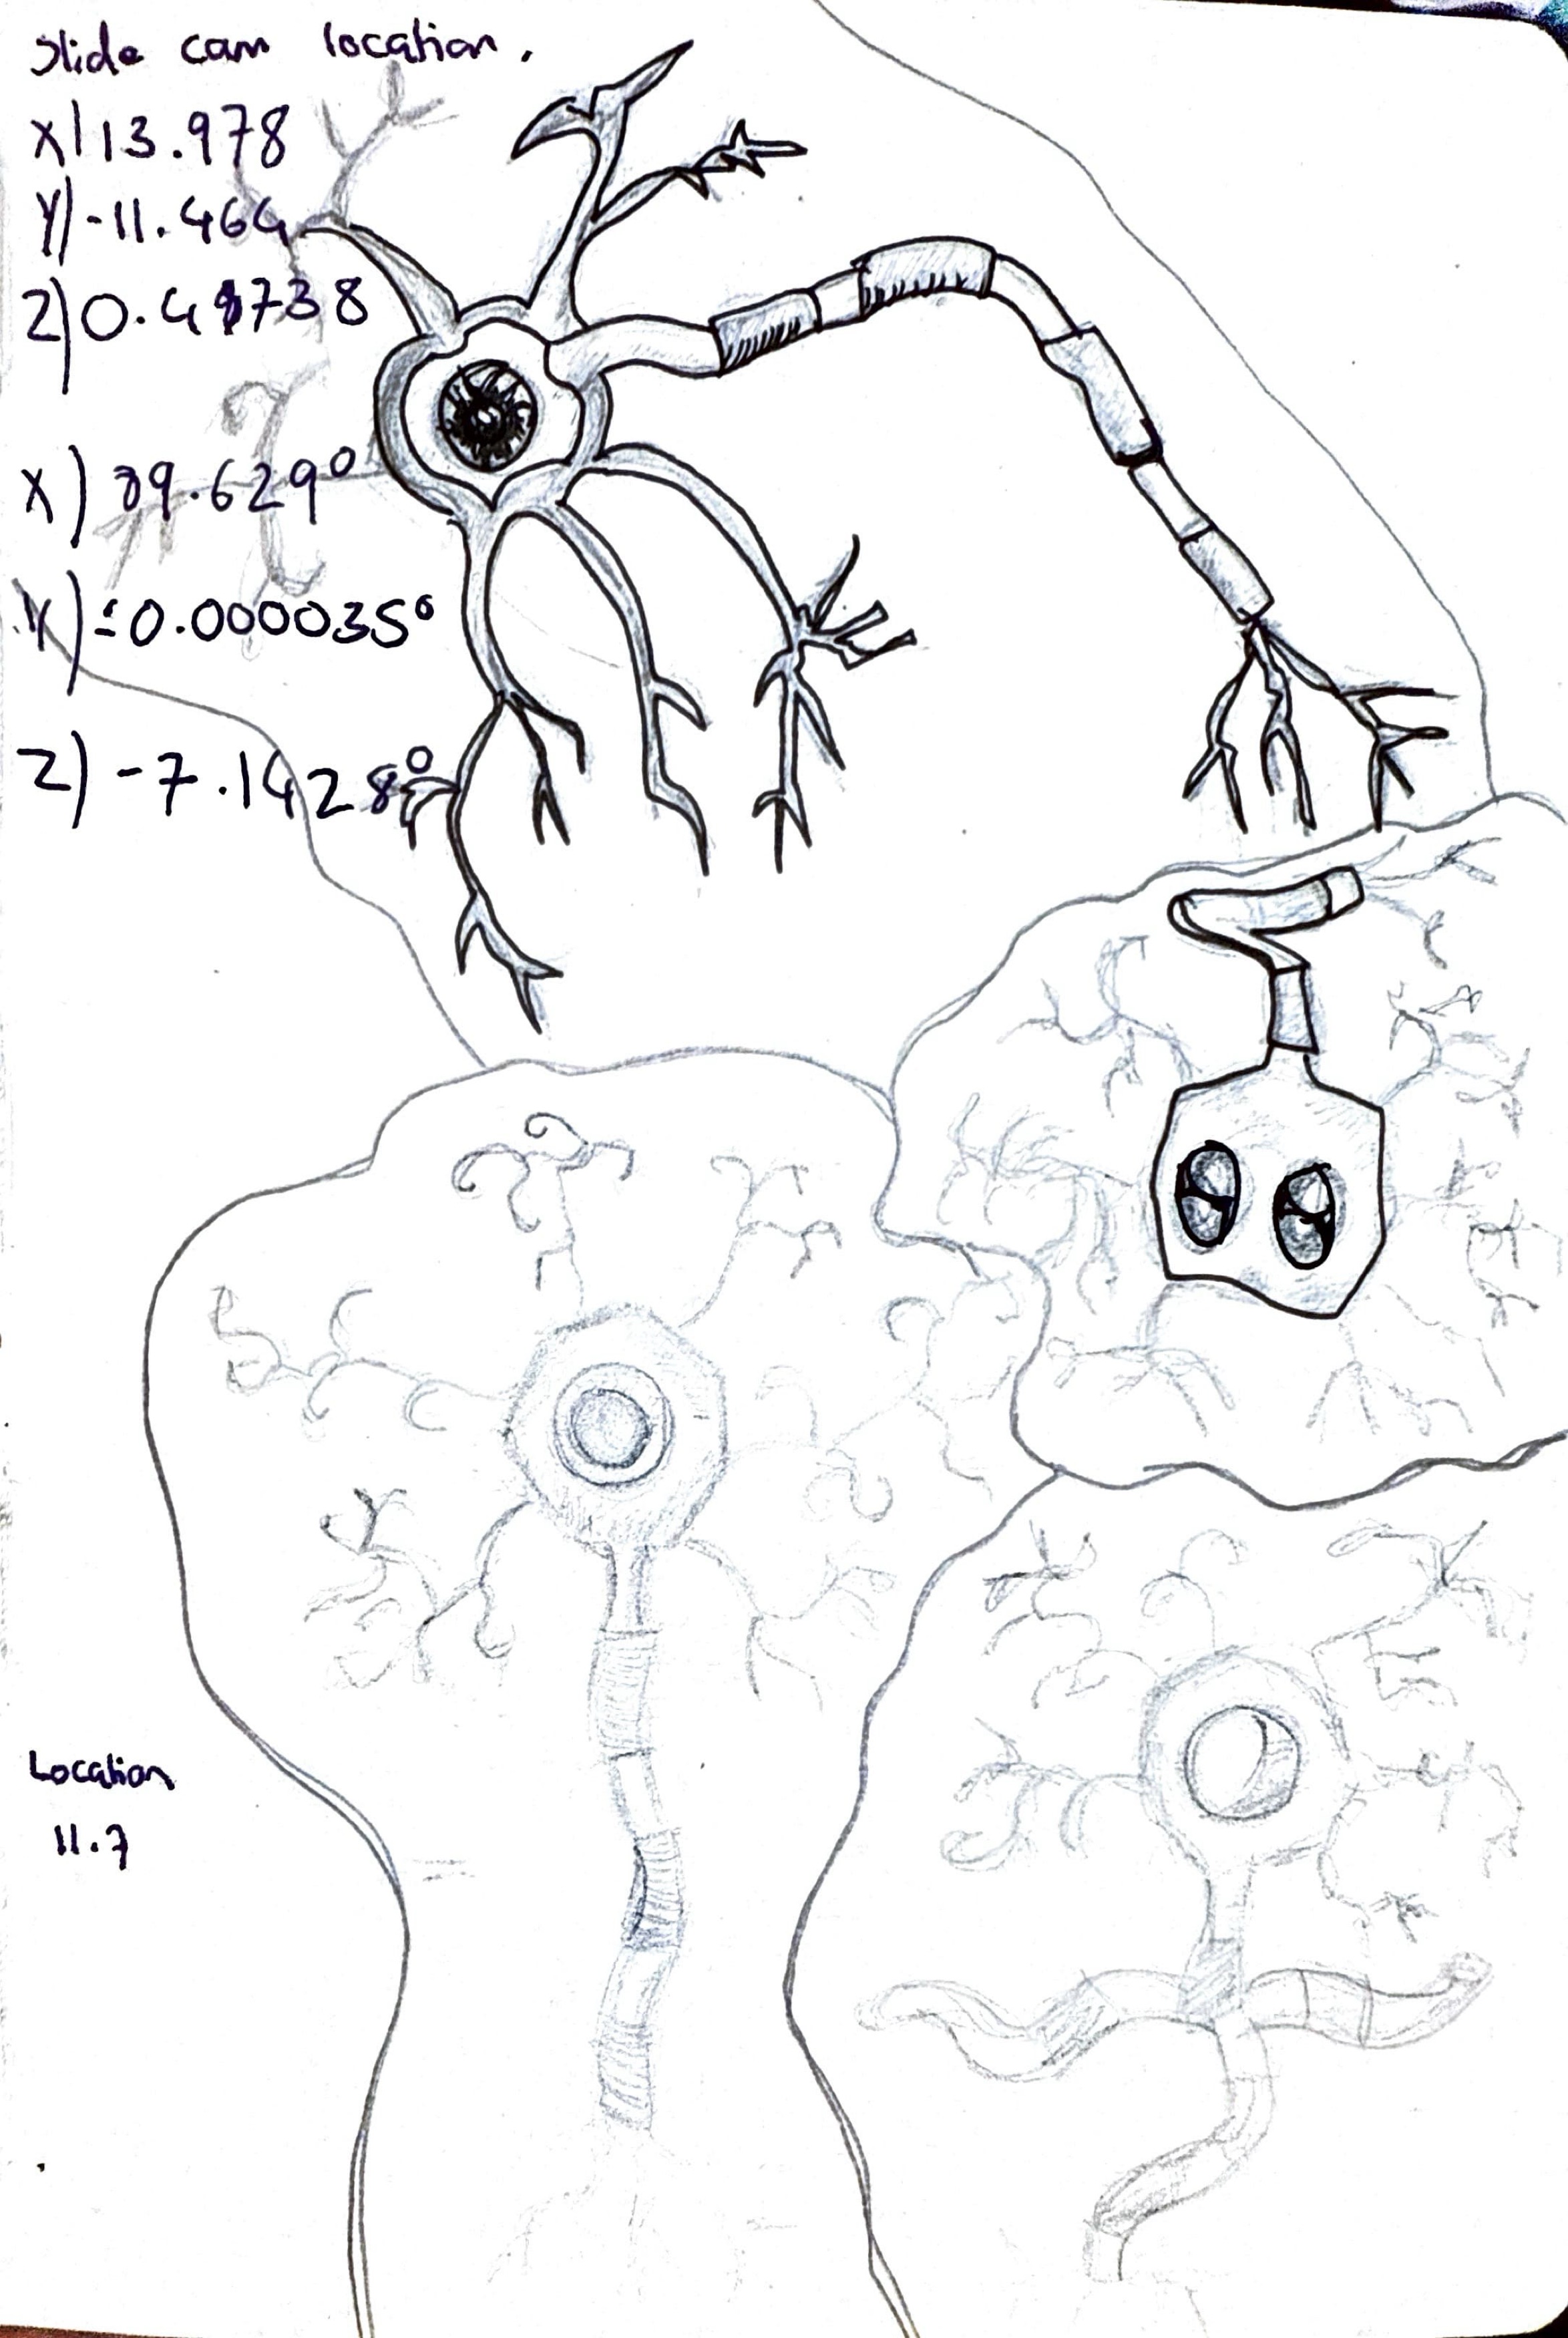 Slide cam location.
X) 13.978
Y) -11.464
Z) 0.4 738
X) 39.629°
Y) -0.000035°
Z) -7.1428°
Location
11.7